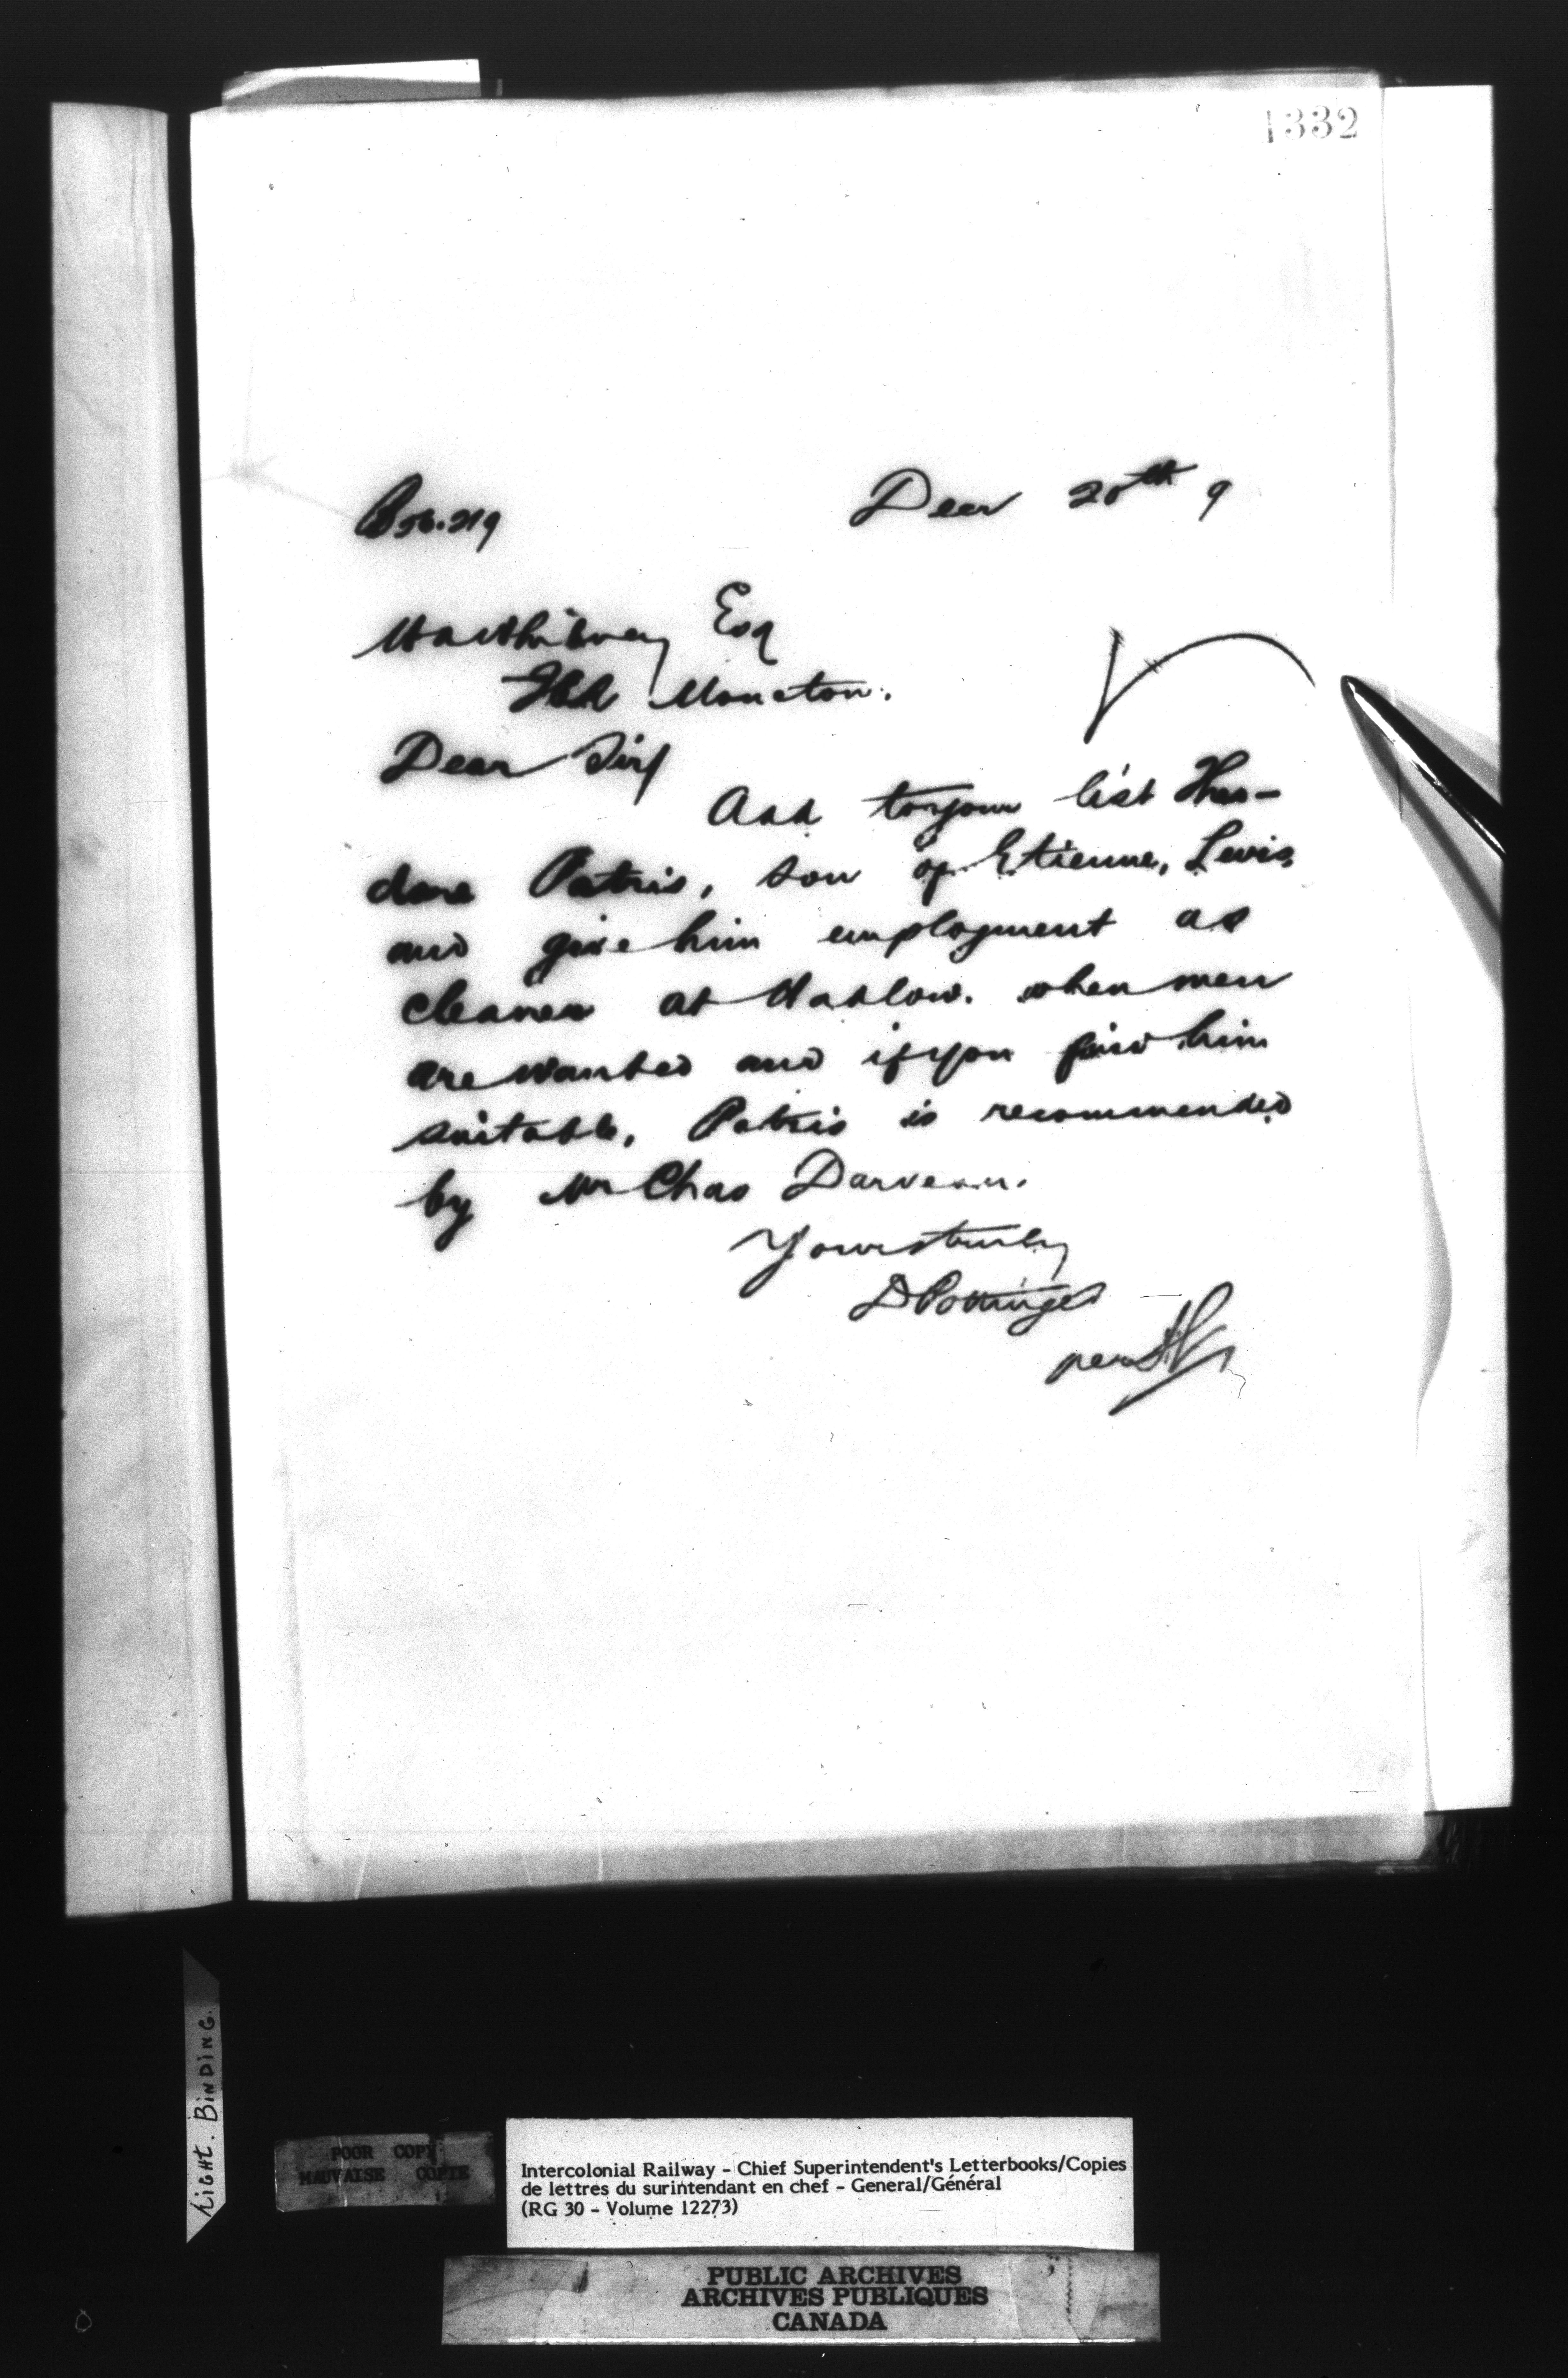 1332
B56.219
Decr 20th 9
H a Whitney Esq
ICR Moncton.
Dear Sir/
Add to your list Theo-
dore Patris, son of Etienne, Levis,
and give him employment as
cleaner at Hadlow. when men
are wanted and if you find him
suitable, Patris is recommended
by Mr Chas Darveau.
Yours truly
D Pottinger
per
LIGHT. BINDING.
POOR COPY
MAUVAISE COPIE
Intercolonial Railway - Chief Superintendent's Letterbooks/Copies
de lettres du surintendant en chef - General/Général
(RG 30 - Volume 12273)
PUBLIC ARCHIVES
ARCHIVES PUBLIQUES
CANADA